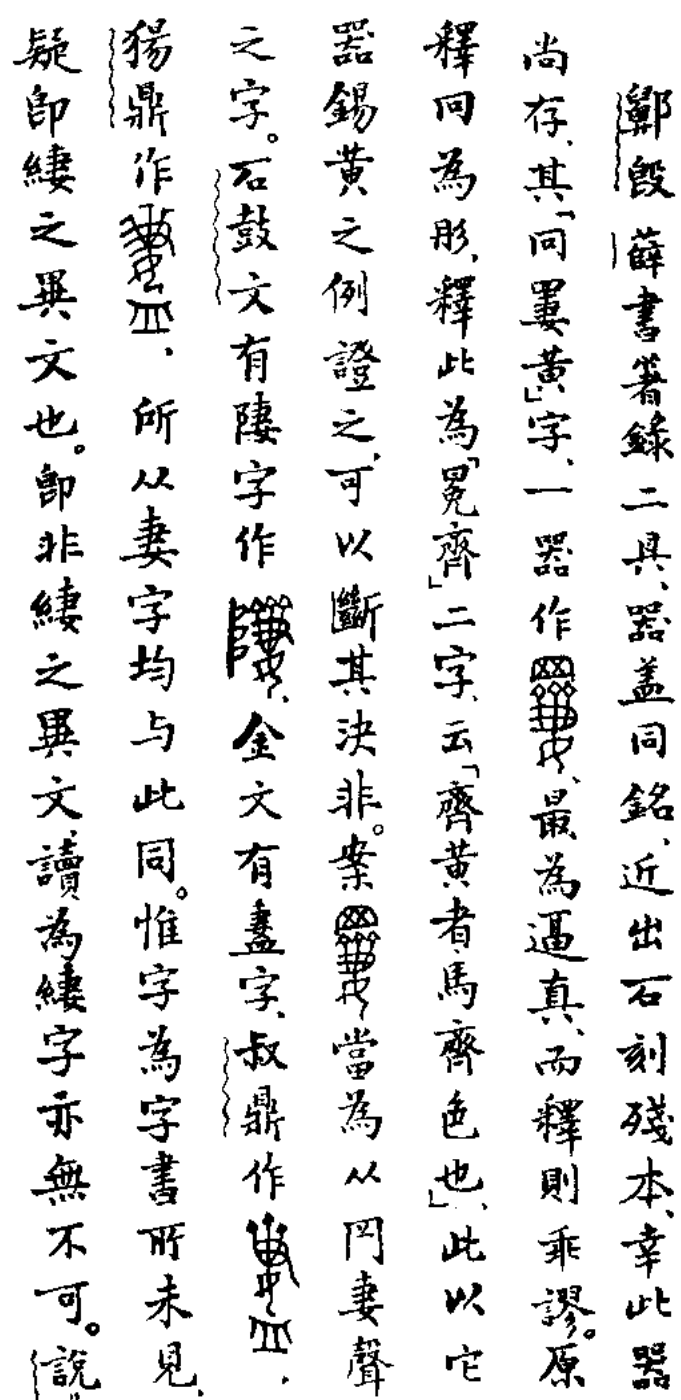 鄭𣪘 薛書箸錄二具、器盖同銘、近出石刻殘本、幸此器
尚存、其「冋𦋺黄」字、一器作、最為逼真、而釋則乖謬。原
釋冋為彤、釋此為「冕齊」二字、云「齊黄者、馬齊色也」、此以它
器錫黄之例證之、可以斷其決非。案當為从网妻聲
之字。石鼓文有𨻻字作、金文有𥂰字、叔鼎作、
猲鼎作、所从妻字均与此同。惟字為字書所未見、
疑即緀之異文也。即非緀之異文、讀為緀字亦無不可。說